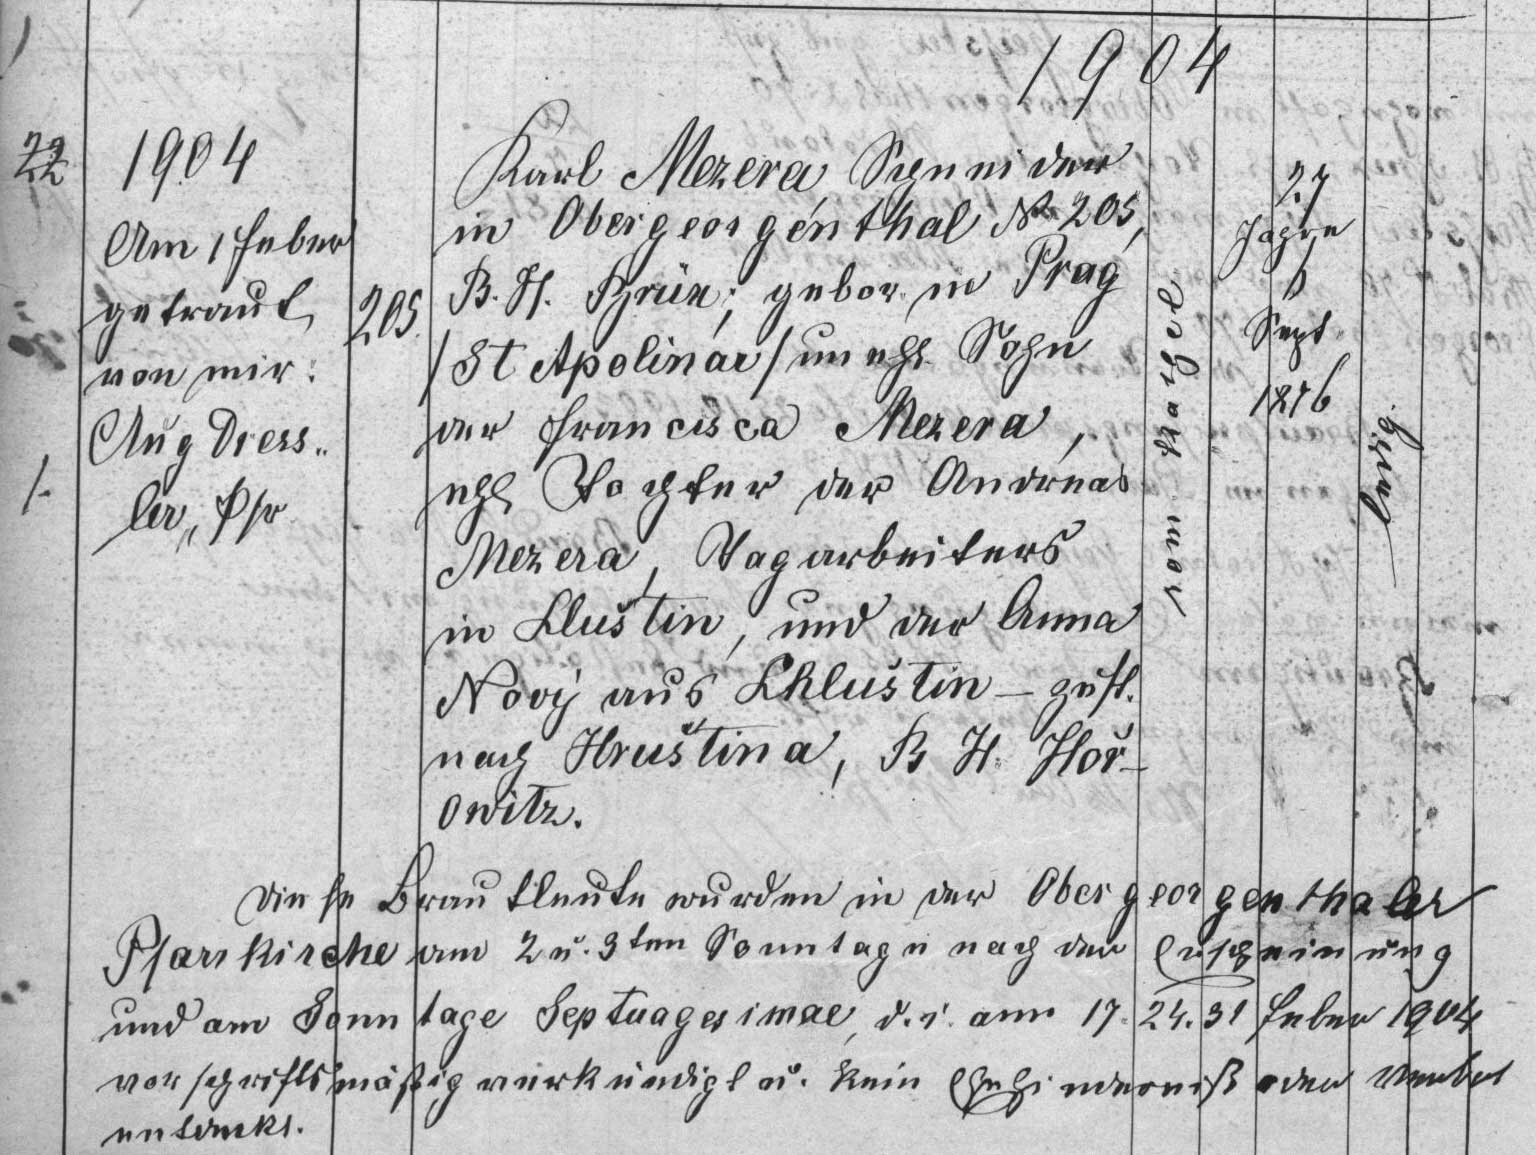 1904
22
1904
Am 1 Feber
getraut
von mir:
Aug Dress„
ler„ Pfr
1.
205.
Karl Mezera Schneider
in Obergeorgenthal N 205,
B. H. Brüx; gebor. in Prag
/St Apolinar/ unehl Sohn
der Francisca Mezera,
ehl Tochter der Andreas
Mezera, Tagarbeiters
in Lluštin, und der Anna
Nový aus Chluštin – zust.
nach Hruština, B H. Hoř–
owitz.
röm kath
27
Jahre
6
Sept
1876
ledig.
Diese Brautleute wurden in der Obergeorgenthaler
Pfarrkirche am 2 u. 3ten Sonntage nach der Erscheinung
und am Sonntage Septuagesimae, d. i. am 17. 24. 31 Feber 1904
vorschriftsmäßig verkündigt u. kein Ehehinderniß oder Verbot
entdeckt.